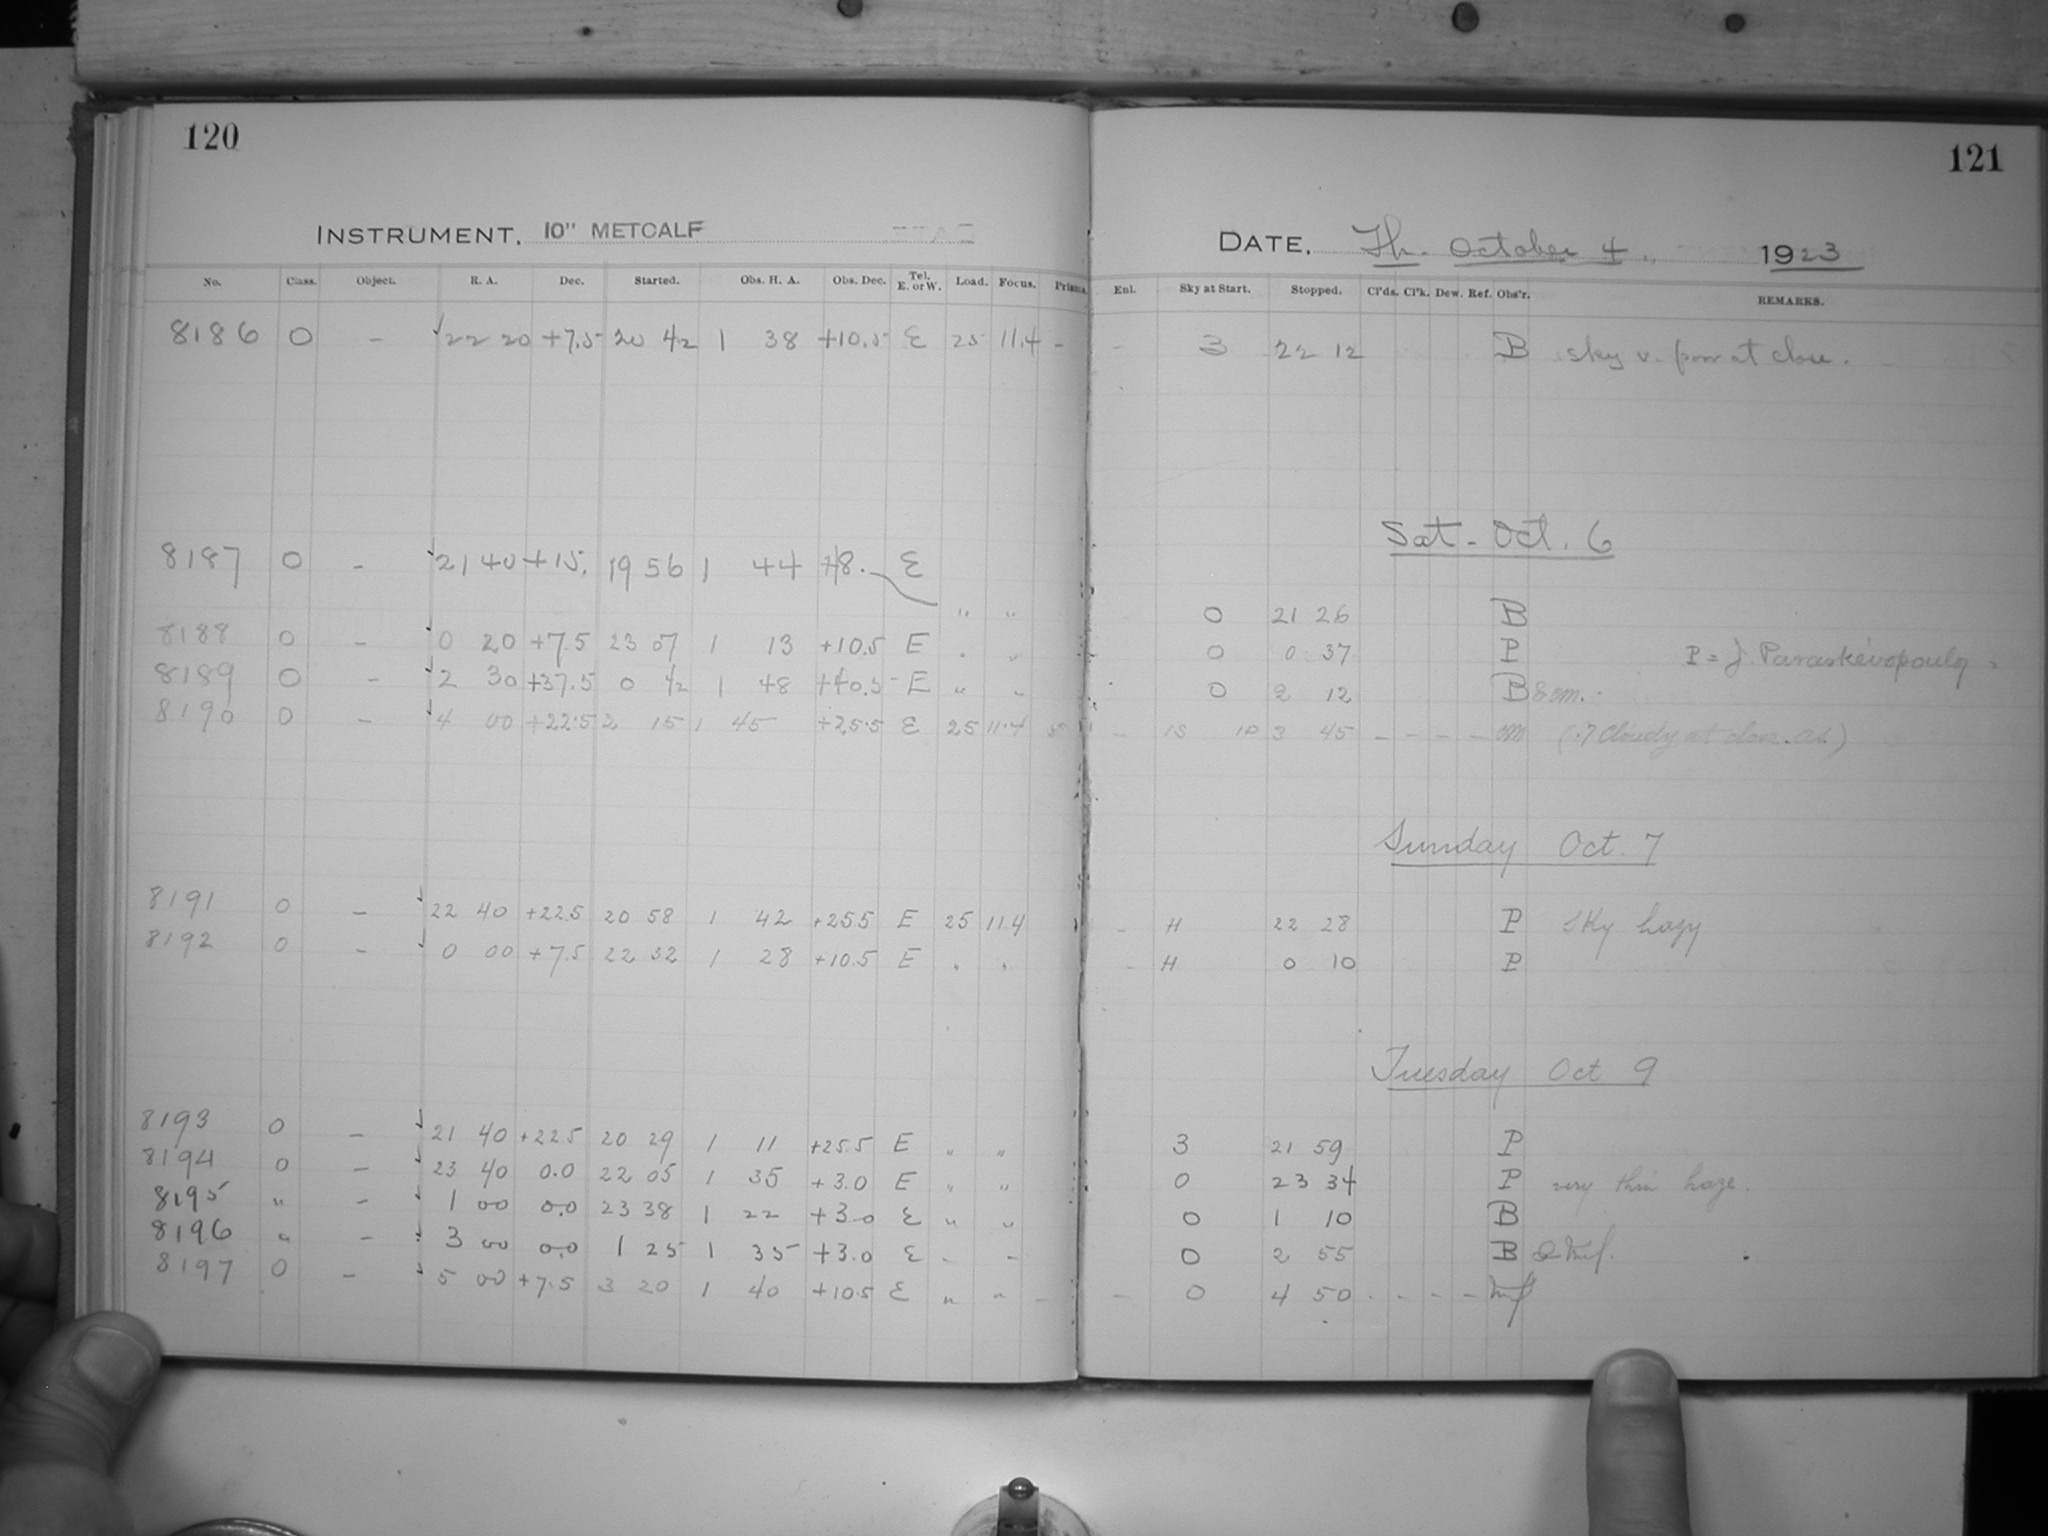 120
INSTRUMENT. 10" METCALF
No. Class. Object. R. A. Dec. Started. Obs. H. A. Obs. Dec. Tel. E. or W. Load. Focus. Prisms.
8186 O - 22 20 +7.5 20 42 1 38 +10.5 E 25 11.4 -
8187 O - 21 40 +15. 19 56 1 44 +18. E " "
8188 O - 0 20 +7.5 23 07 1 13 +10.5 E " "
8189 O - 2 30 +37.5 0 42 1 48 +40.5 E " "
8190 O - 4 00 +22.5 2 15 1 45 +25.5 E 25 11.4
8191 O - 22 40 +22.5 20 58 1 42 +25.5 E 25 11.4
8192 O - 0 00 +7.5 22 32 1 28 +10.5 E " "
8193 O - 21 40 +22.5 20 29 1 11 +25.5 E " "
8194 O - 23 40 0.0 22 05 1 35 +3.0 E " "
8195 " - 1 00 0.0 23 38 1 22 +3.0 E " "
8196 " - 3 00 0.0 1 25 1 35 +3.0 E - -
8197 O - 5 00 +7.5 3 20 1 40 +10.5 E " " -
121
DATE. Th. October 4. 1923
Enl. Sky at Start. Stopped. Cl'ds. Cl'k. Dew. Ref. Obs'r. REMARKS.
- 3 22 12 B sky v. poor at close.
Sat. Oct. 6
0 21 26 B
0 0 37 P P = J. Paraskévopoulos
0 2 12 B & m.
- 1S 1P 3 45 - - - - m (.7 Cloudy at close. )
Sunday Oct. 7
- H 22 28 P Sky hazy
- H 0 10 P
Tuesday Oct 9
3 21 59 P
0 23 34 P very thin haze.
0 1 10 B
0 2 55 B &
- 0 4 50 - - - -